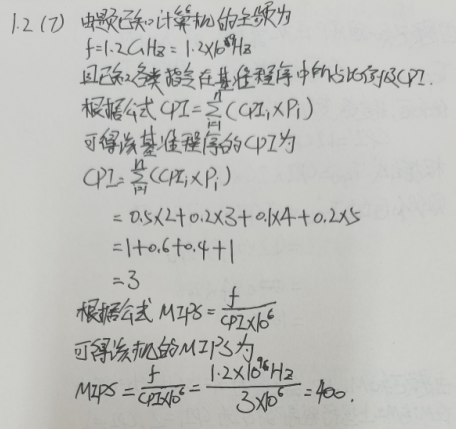 1.2 (7) 由题已知计算机的主频为
f=1.2GHz=1.2×10⁹Hz
且已知各类指令在基准程序中的占比例及CPI.
根据公式 CPI=∑ⁿᵢ₌₁(CPIᵢ×Pᵢ)
可得该基准程序的CPI为
CPI=∑ⁿᵢ₌₁(CPIᵢ×Pᵢ)
=0.5×2+0.2×3+0.1×4+0.2×5
=1+0.6+0.4+1
=3
根据公式 MIPS=f/(CPI×10⁶)
可得该机的MIPS为
MIPS=f/(CPI×10⁶)=1.2×10⁹Hz/(3×10⁶)=400.